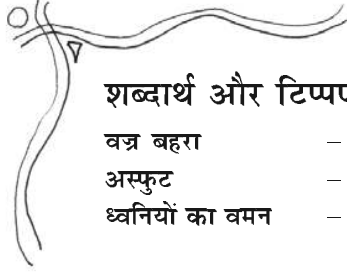 शब्दार्थ और
वज्र बहरा –
अस्फुट –
ध्वनियों का वमन –